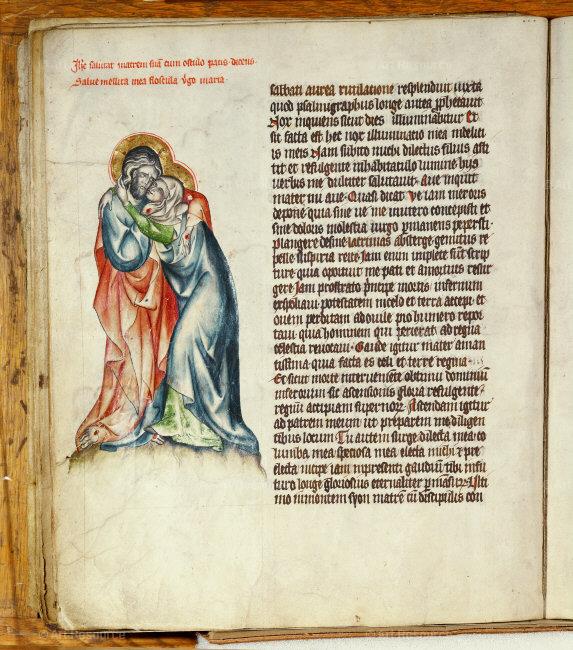 Ihc salutat matrem suā cum osculo pacis dicens
Salue mellita mea floscula v̊go maria
sabbati aurea rutilatione resplenduit iuxta
quod psalmigraphus longe antea ꝓphetauit
Nox inquiens sicut dies illuminabitur Et
sic facta est hec nox illuminatio mea in delicijs
is meis Nam subito michi dilectus filius astitit
tit et refulgente inhabitaculo lumine hijs
uerbis me dulciter salutauit aue inquit
mater mi aue Quasi dicat Ue iam meroris
depone quia sine ue me in utero concepisti et
sine doloris molestia uirgo ꝑmanens peperisti
Plangere desine lacrimas absterge gemitus re
pelle suspiria reice Iam enim implete sūt scrip
ture quia oportuit me pati et a mortuis resur
gere Iam prostrato p̄ncipe mortis infernum
expoliaui potestatem in celo et terra accepi et
ouem perditam ad ouile ꝓprio humero repor
taui quia hominem qui perierat ad regna
celestia reuocaui Gaude igitur mater aman
tissima quia facta es celi et terre regina
Et sicut morte interueniente obtinui dominiū
inferorum sic ascensionis gloria refulgente
regnū accipiam supernorꝝ Ascendam igitur
ad patrem meum ut preparem me diligen
tibus locum Tu autem surge dilecta mea co
lumba mea speciosa mea electa michi et pre
electa
longe gloriosius eternaliter
mo in montem syon matrē cū discipulis con
Art Resource